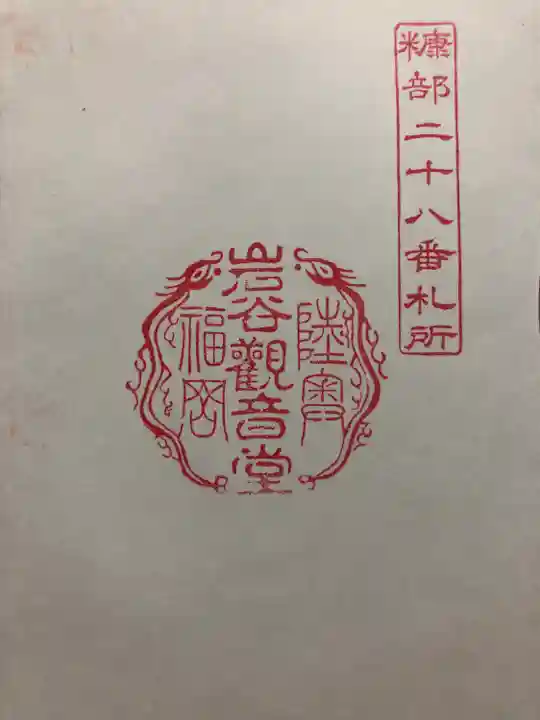 糠部二十八番札所
陸奥
岩谷觀音堂
福岡